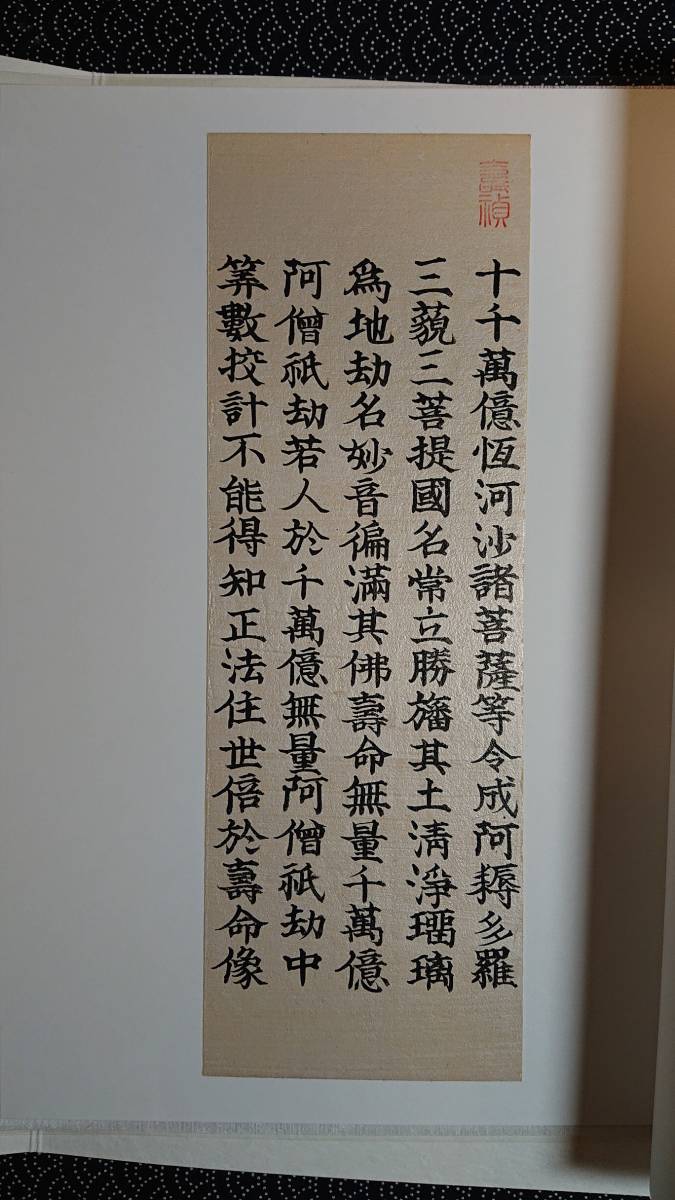 壽禎
十千萬億恆河沙諸菩薩等令成阿耨多羅
三藐三菩提國名常立勝旛其土清淨瑠璃
爲地劫名妙音徧滿其佛壽命無量千萬億
阿僧祇劫若人於千萬億無量阿僧祇劫中
筭數挍計不能得知正法住世倍於壽命像